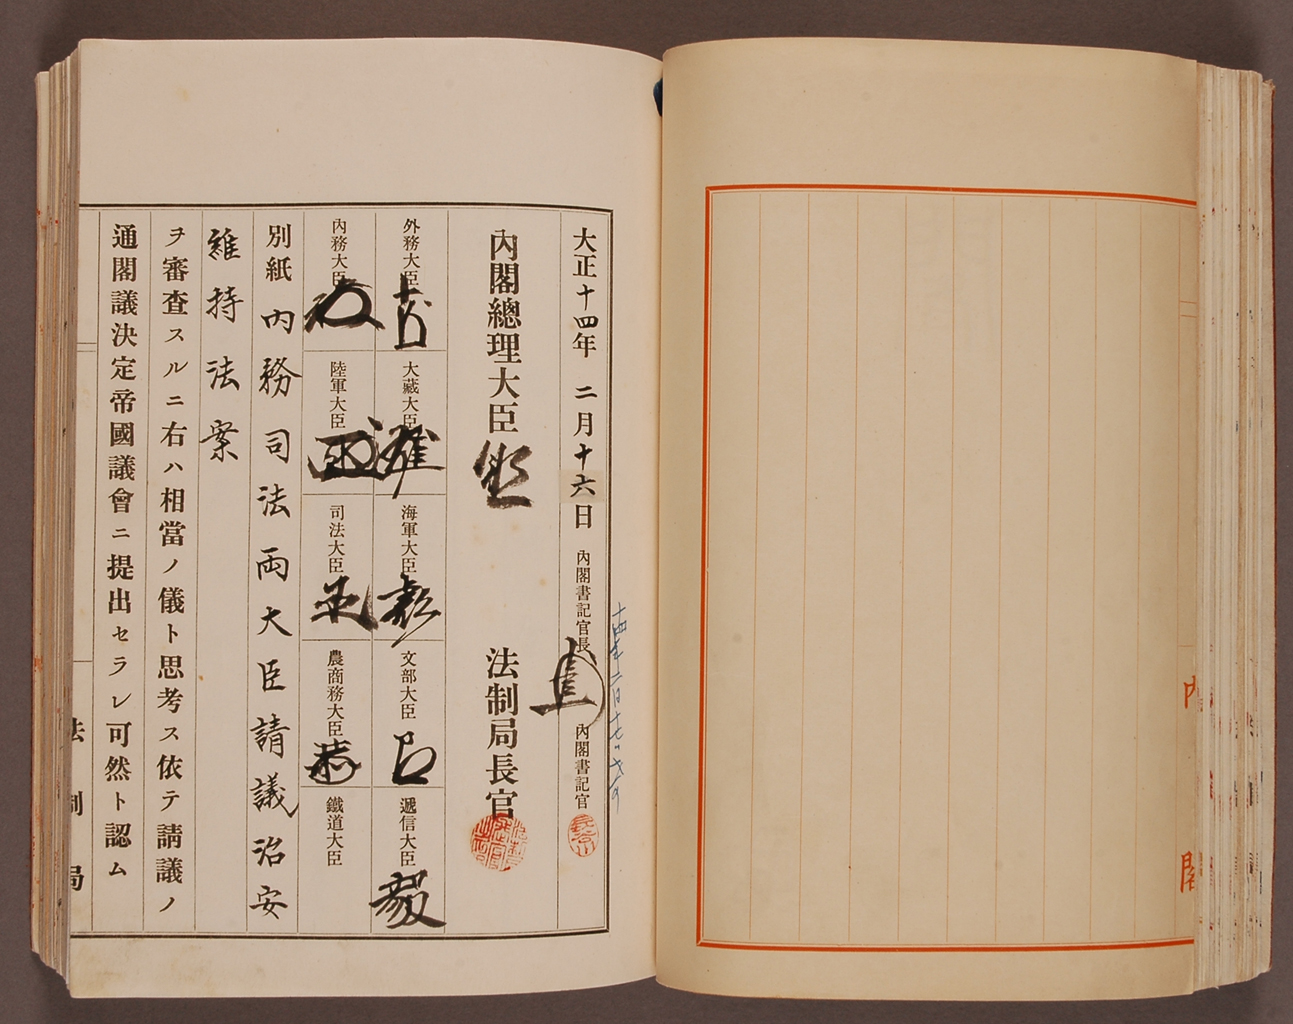 大正十四年 二月十六日 內閣書記官長 內閣書記官
內閣總理大臣 法制局長官
外務大臣
大藏大臣
海軍大臣
文部大臣
遞信大臣
內務大臣
陸軍大臣
司法大臣
農商務大臣
鐵道大臣
別紙內務司法両大臣請議治安
維持法案
ヲ審査スルニ右ハ相當ノ儀ト思考ス依テ請議ノ
通閣議決定帝國議會ニ提出セラレ可然ト認ム
法制局
內閣